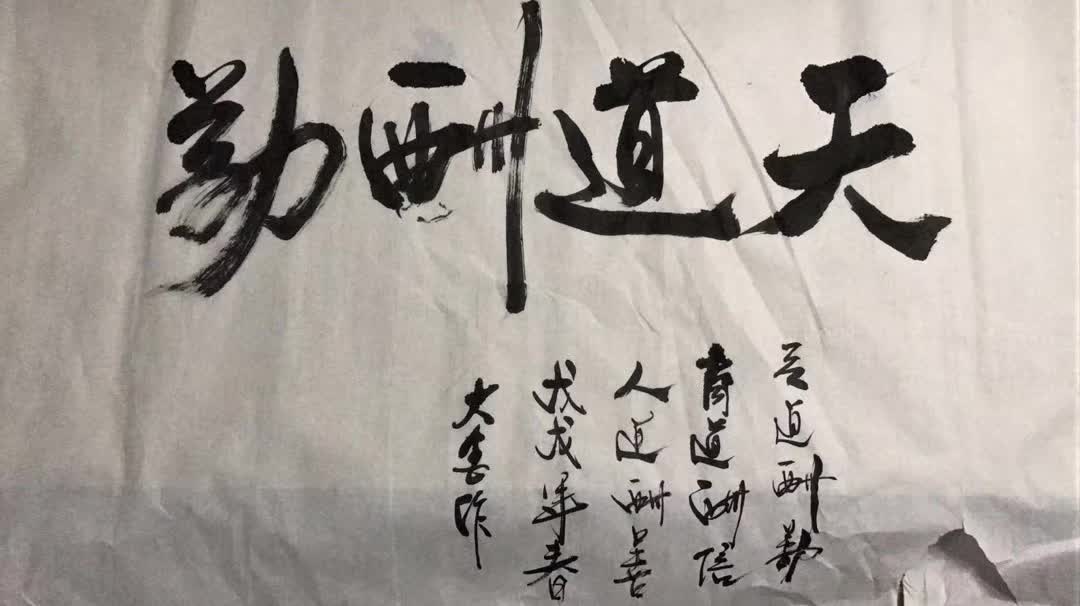 天道酬勤
天道酬勤
商道酬信
人道酬善
戊戌年春
大喜作